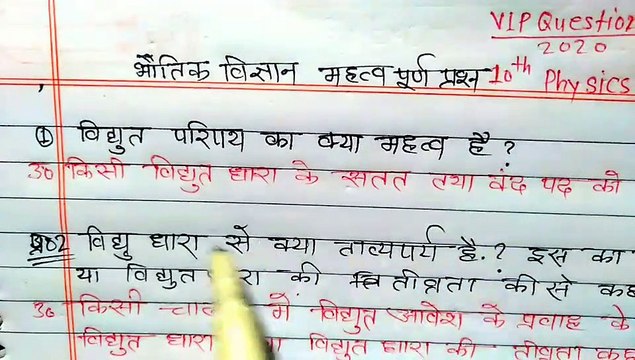 VIP Question
2020
भौतिक विज्ञान महत्व पूर्ण प्रश्न 10th Physics
① विद्युत परिपथ का क्या महत्व है ?
उ० किसी विद्युत धारा के सतत तथा बंद पद को
प्र०2 विद्यु धारा से क्या तात्यपर्य है.? इस का
या विद्युत की तीव्रता कीसे कह
उ० किसी में विद्युत आवेश के प्रवाह के
विद्युत धारा विद्युत धारा की तीव्रता कह